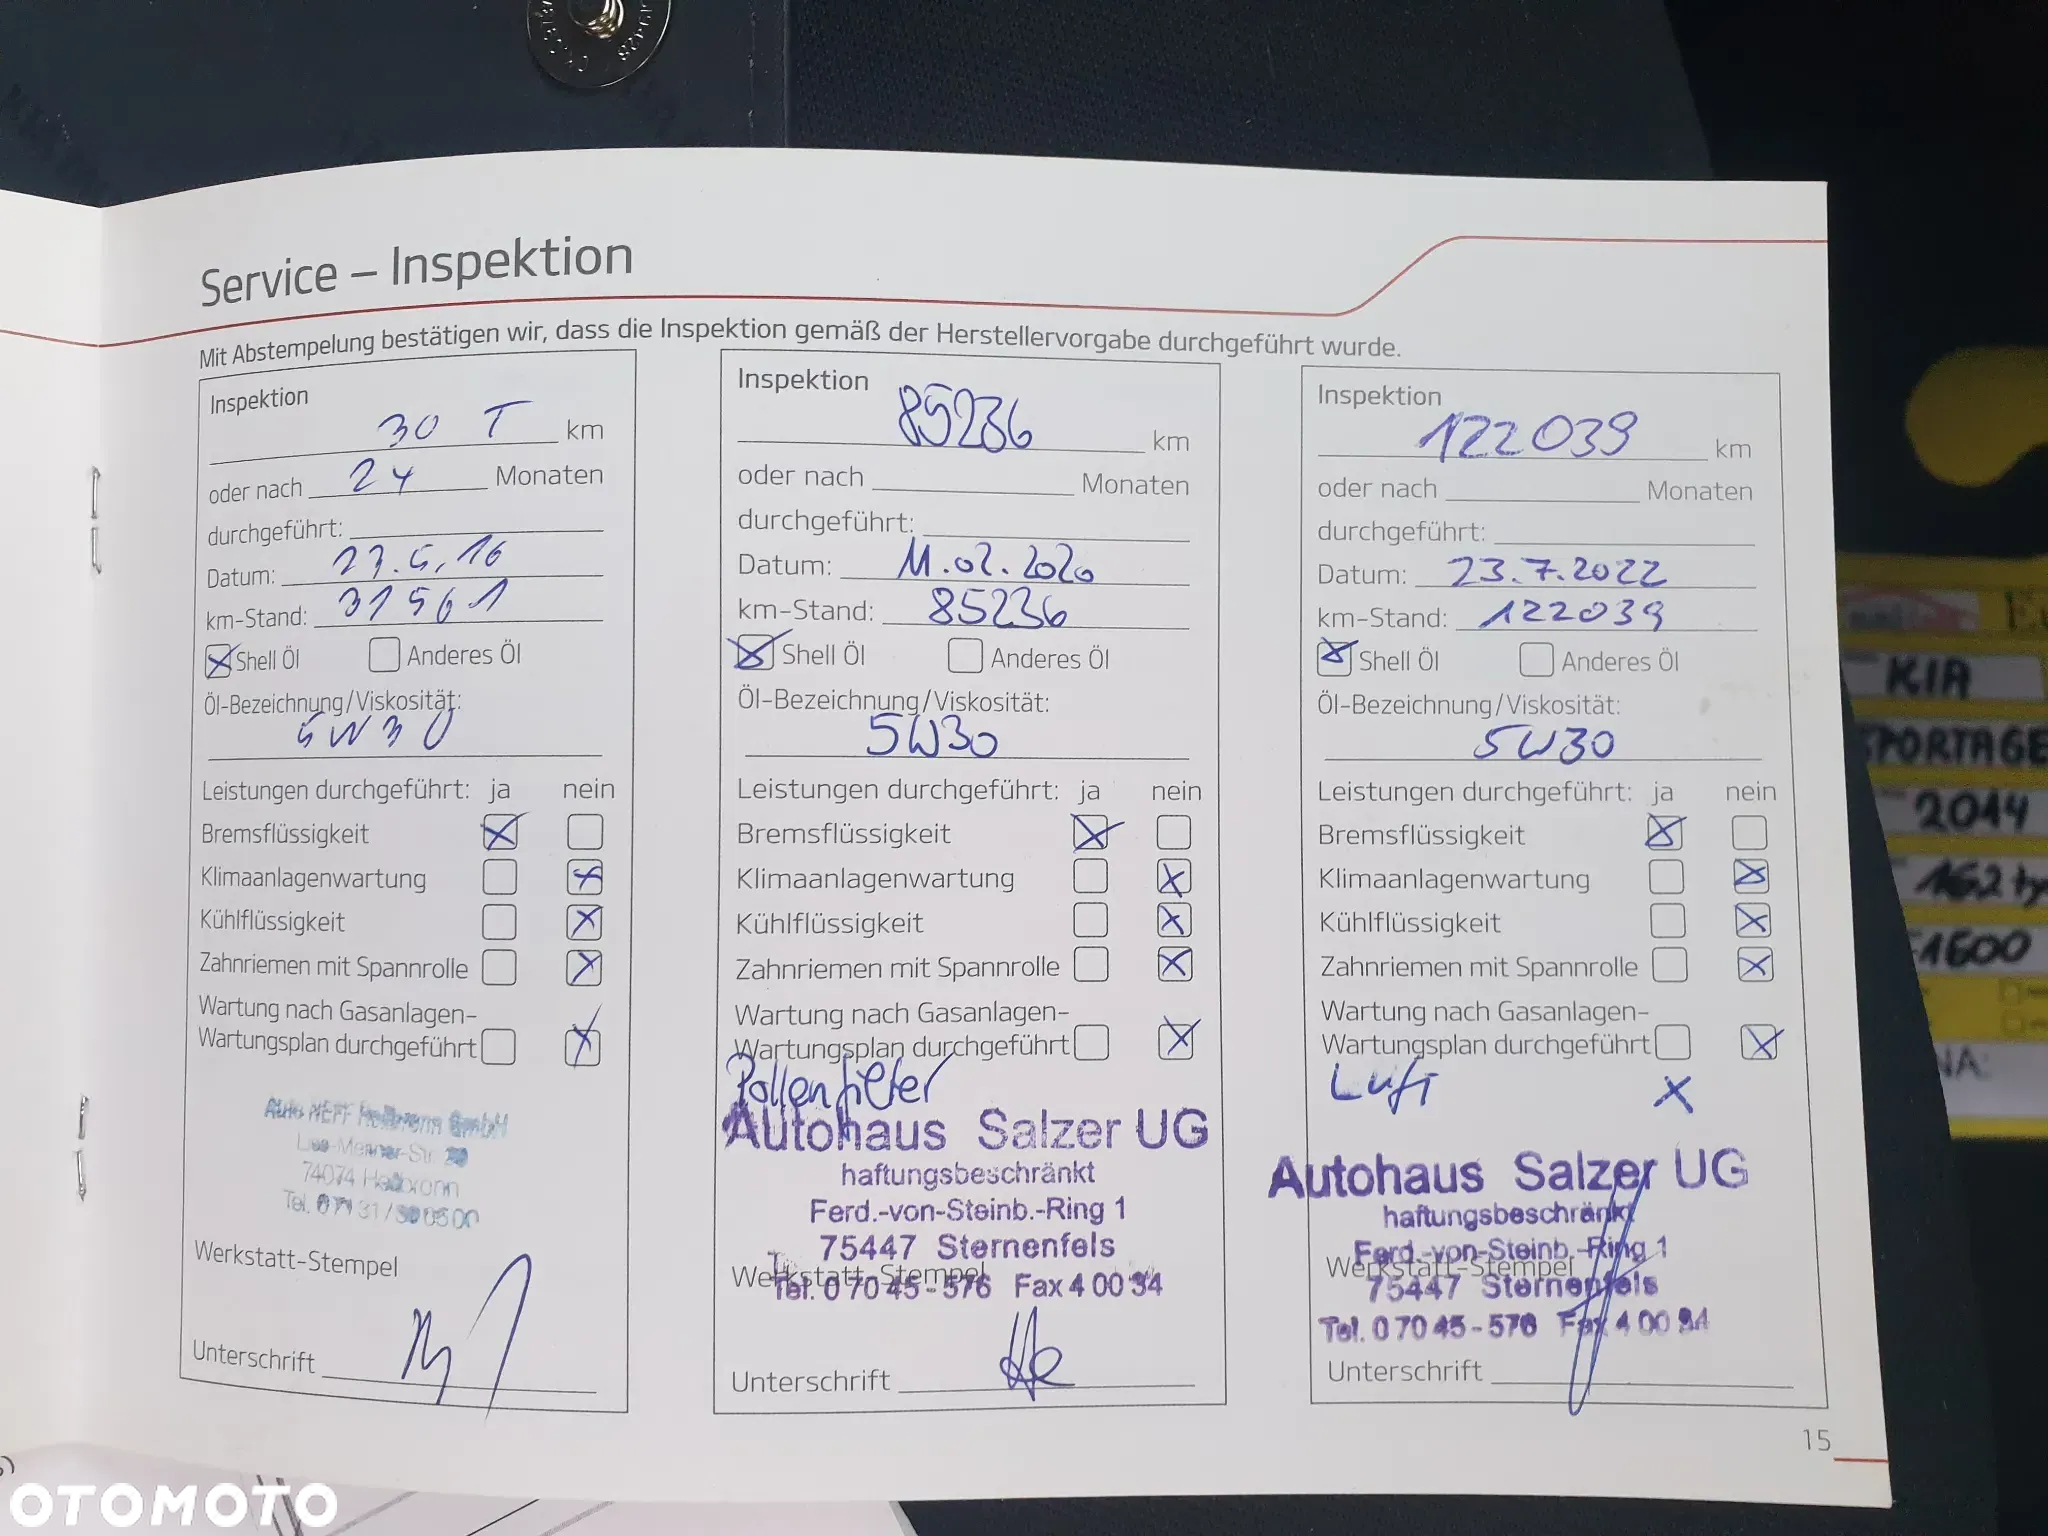 Service – Inspektion
Mit Abstempelung bestätigen wir, dass die Inspektion gemäß der Herstellervorgabe durchgeführt wurde.
Inspektion
30 T km
oder nach 24 Monaten
durchgeführt:
Datum: 23.5.16
km-Stand: 31561
Shell Öl Anderes Öl
Öl-Bezeichnung/Viskosität:
5W30
Leistungen durchgeführt: ja nein
Bremsflüssigkeit
Klimaanlagenwartung
Kühlflüssigkeit
Zahnriemen mit Spannrolle
Wartung nach Gasanlagen-
Wartungsplan durchgeführt
Auto NEFF Heilbronn GmbH
74074 Heilbronn
Werkstatt-Stempel
Unterschrift
Inspektion
85236 km
oder nach Monaten
durchgeführt:
Datum: 11.02.2020
km-Stand: 85236
Shell Öl Anderes Öl
Öl-Bezeichnung/Viskosität:
5W30
Leistungen durchgeführt: ja nein
Bremsflüssigkeit
Klimaanlagenwartung
Kühlflüssigkeit
Zahnriemen mit Spannrolle
Wartung nach Gasanlagen-
Wartungsplan durchgeführt
Pollenfilter
Autohaus Salzer UG
haftungsbeschränkt
Ferd.-von-Steinb.-Ring 1
75447 Sternenfels
Werkstatt-Stempel
Tel. 0 70 45 - 576 Fax 4 00 94
Unterschrift
Inspektion
122039 km
oder nach Monaten
durchgeführt:
Datum: 23.7.2022
km-Stand: 122039
Shell Öl Anderes Öl
Öl-Bezeichnung/Viskosität:
5W30
Leistungen durchgeführt: ja nein
Bremsflüssigkeit
Klimaanlagenwartung
Kühlflüssigkeit
Zahnriemen mit Spannrolle
Wartung nach Gasanlagen-
Wartungsplan durchgeführt
Luft X
Autohaus Salzer UG
haftungsbeschränkt
Ferd.-von-Steinb.-Ring 1
Werkstatt-Stempel
75447 Sternenfels
Tel. 0 70 45 - 576 Fax 4 00 94
Unterschrift
15
KIA
SPORTAGE
2014
162 ty
1600
OTOMOTO